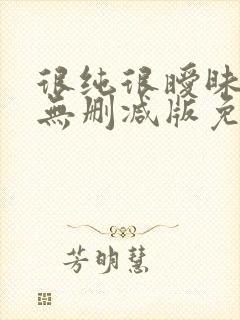 很纯很暧昧
無删减版免
芳明慧